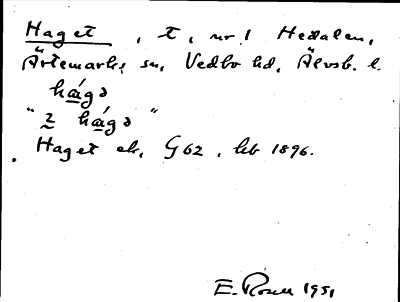 Haget, t, nr 1 Hedalen,
Ärtemarks sn, Vedbo hd, Älvsb. l.
há̱gə
"2 há̱gə"
Haget ek, G62, kb 1896.
E. Rosell 1951